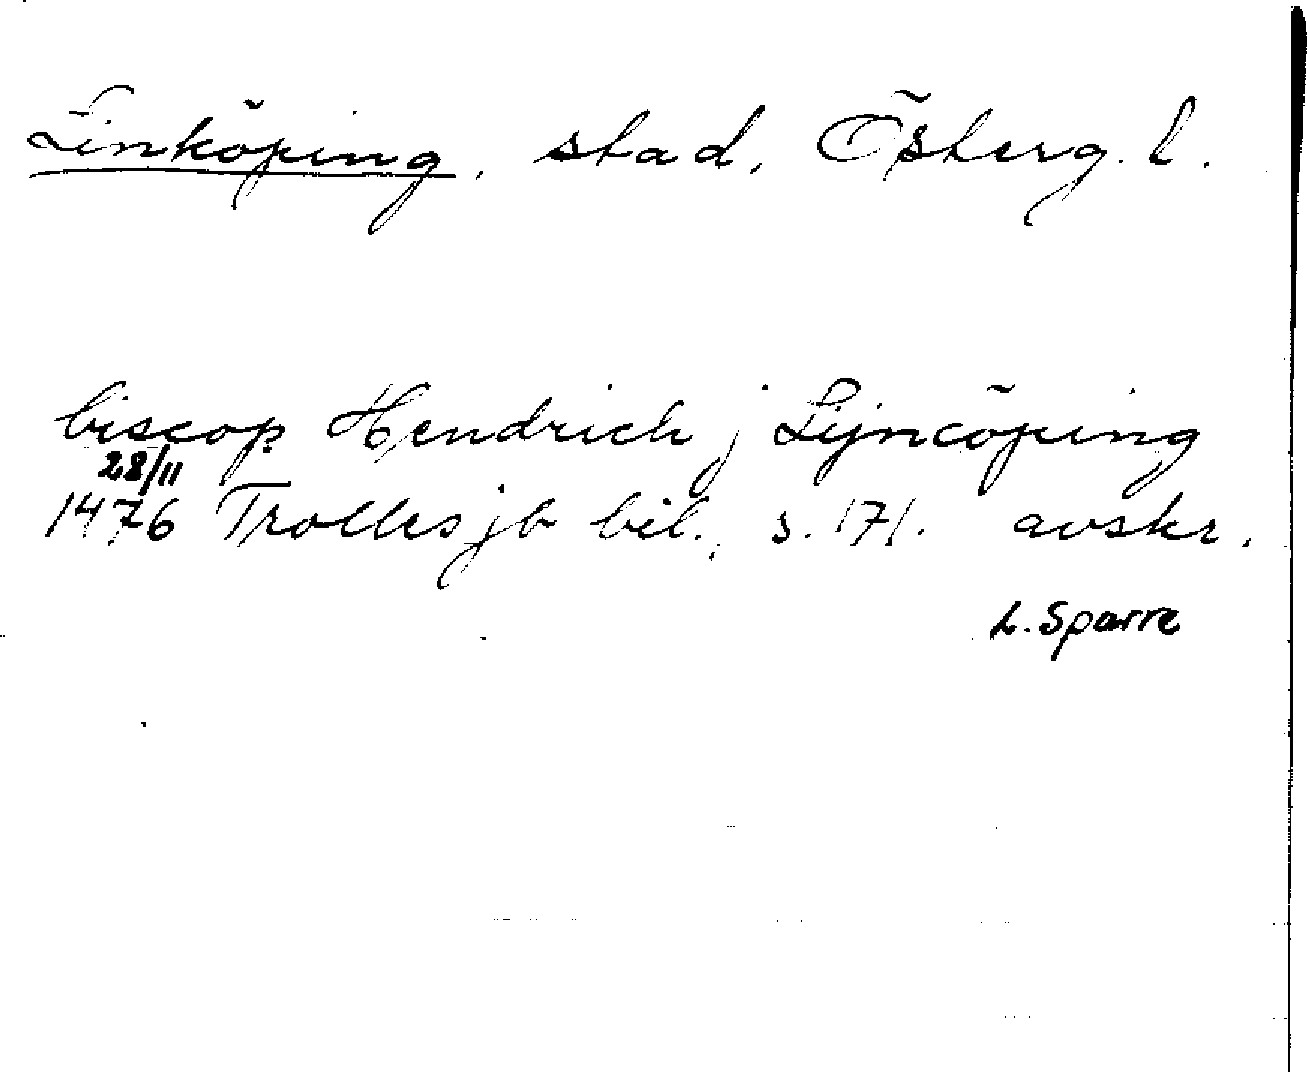 Linköping, stad, Österg. l.
biscop Hendrich j Lijncöping
28/11
1476 Trolles jb bil., s. 171. avskr.
L. Sparre